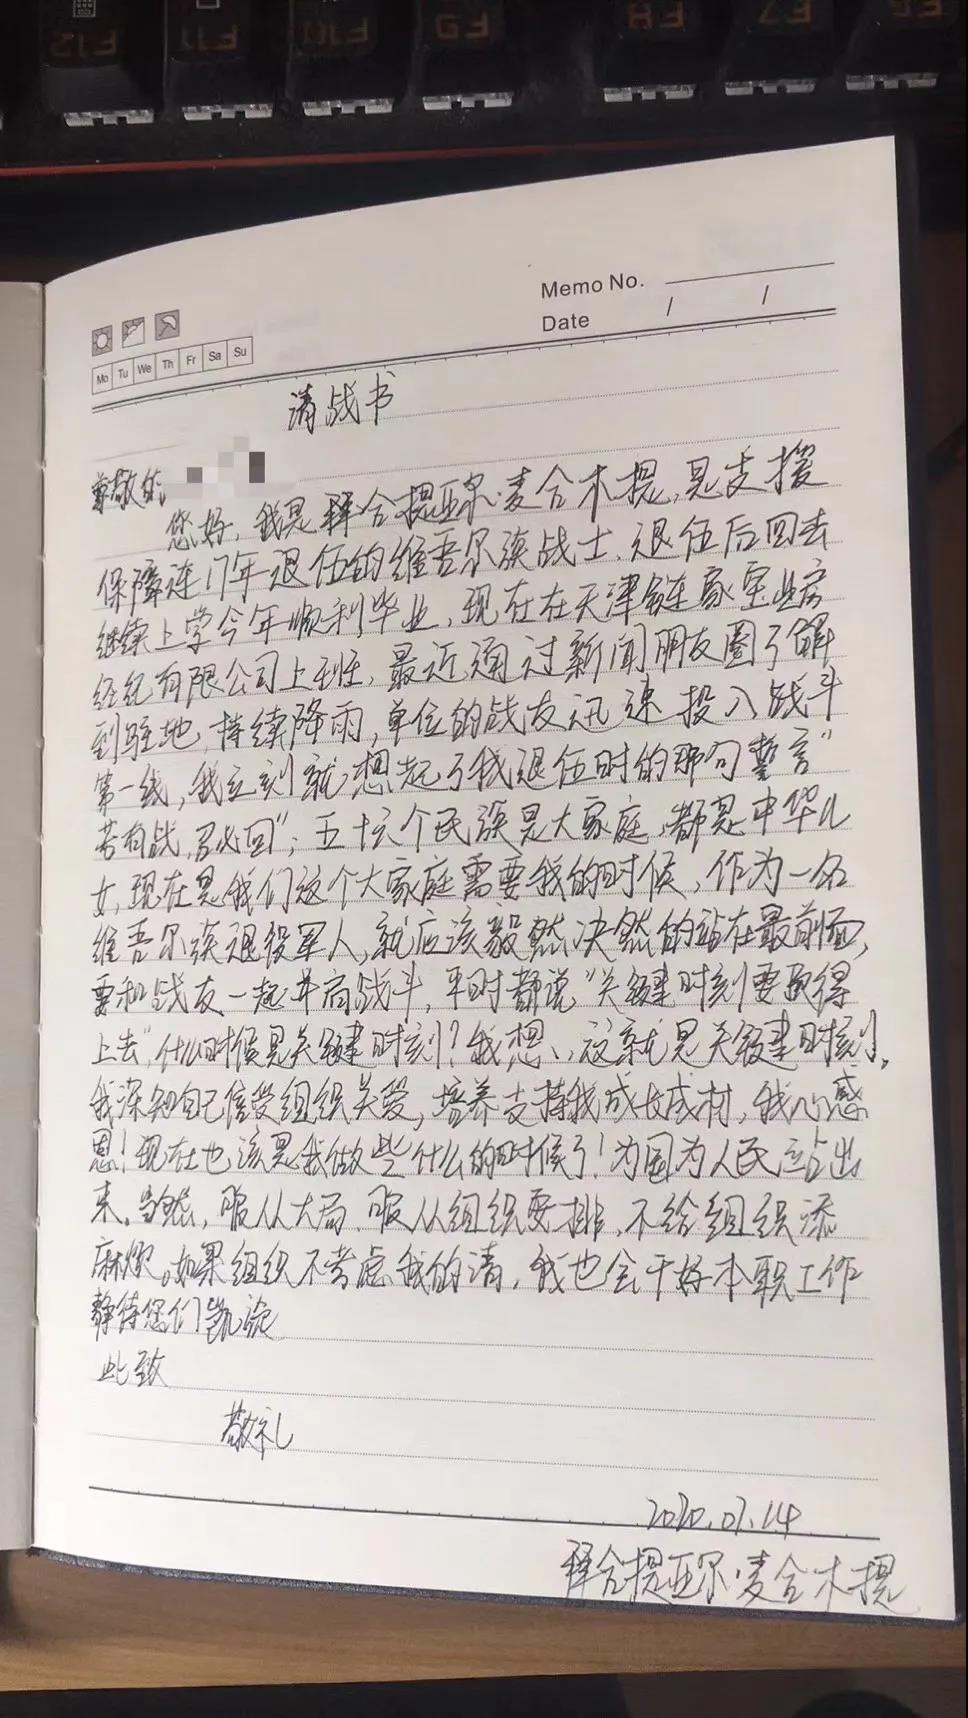 F12 F11 F10 F9 F8 F7 F6
Memo No.
Date / /
Mo Tu We Th Fr Sa Su
请战书
尊敬的
您好，我是拜合提亚尔·麦合木提，是支援
保障连17年退伍的维吾尔族战士、退伍后回去
继续上学今年顺利毕业，现在在天津链家宝业房
经纪有限公司上班，最近通过新闻朋友圈了解
到驻地，持续降雨，单位的战友迅速投入战斗
第一线，我立刻就想起了我退伍时的那句誓言"
若有战，召必回"；五十六个民族是大家庭，都是中华儿
女，现在是我们这个大家庭需要我的时候，作为一名
维吾尔族退役军人，就应该毅然决然的站在最前面，
要和战友一起并肩战斗，平时都说"关键时刻要顶得
上去"，什么时候是关键时刻？我想、这就是关键时刻。
我深知自己倍受组织关爱，培养支持我成长成材，我心感
恩！现在也该是我做些什么的时候了！为国为人民站出
来。当然，服从大局、服从组织要排，不给组织添
麻烦。如果组织不考虑我的请，我也会干好本职工作
静待您们凯旋
此致
敬礼
2020.07.14
拜合提亚尔·麦合木提